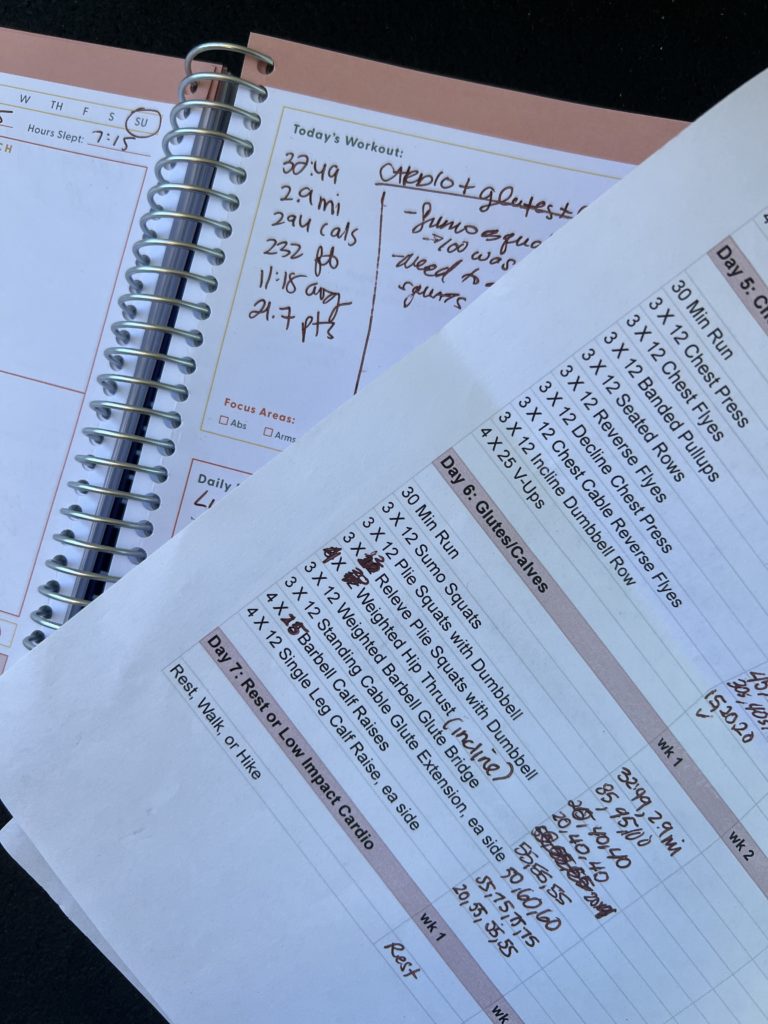 W TH F S SU
Hours Slept: 7:15
Today's Workout:
32:49
2.9 mi
294 cals
232 ft
11:18 avg
21.7 pts
cardio + glutes +
- Sumo squa
→ 100 was
- need to
squats
Focus Areas:
Abs Arms
Daily
Day 5: Ch
30 Min Run
3 X 12 Chest Press
3 X 12 Chest Flyes
3 X 12 Banded Pullups
3 X 12 Seated Rows
3 X 12 Reverse Flyes
3 X 12 Decline Chest Press
3 X 12 Chest Cable Reverse Flyes
3 X 12 Incline Dumbbell Row
4 X 25 V-Ups
15, 20, 20
Day 6: Glutes/Calves wk 1 wk 2
30 Min Run 32:49, 2.9 mi
3 X 12 Sumo Squats 85, 95, 100
3 X 12 Plie Squats with Dumbbell 40, 40
3 X Releve Plie Squats with Dumbbell 20, 40, 40
4 X Weighted Hip Thrust (incline)
3 X 12 Weighted Barbell Glute Bridge 55, 55, 55
3 X 12 Standing Cable Glute Extension, ea side 50, 60, 60
4 X Barbell Calf Raises 55, 75, 75, 75
4 X 12 Single Leg Calf Raise, ea side 20, 55, 55, 55
Day 7: Rest or Low Impact Cardio wk 1 wk
Rest, Walk, or Hike Rest